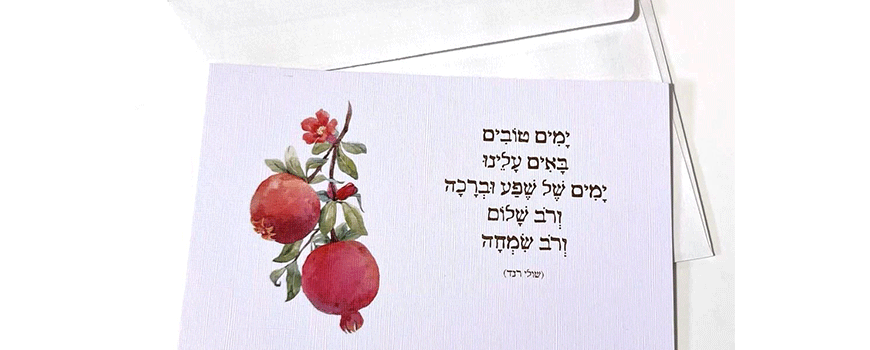 יָמִים טוֹבִים
בָּאִים עָלֵינוּ
יָמִים שֶׁל שֶׁפַע וּבְרָכָה
וְרֹב שָׁלוֹם
וְרֹב שִׂמְחָה
(שולי רנד)